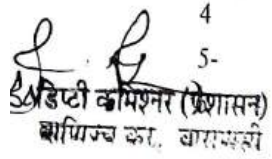 4
5-
डिप्टी कमिश्नर (प्रशासन)
वाणिज्य कर, वाराणसी